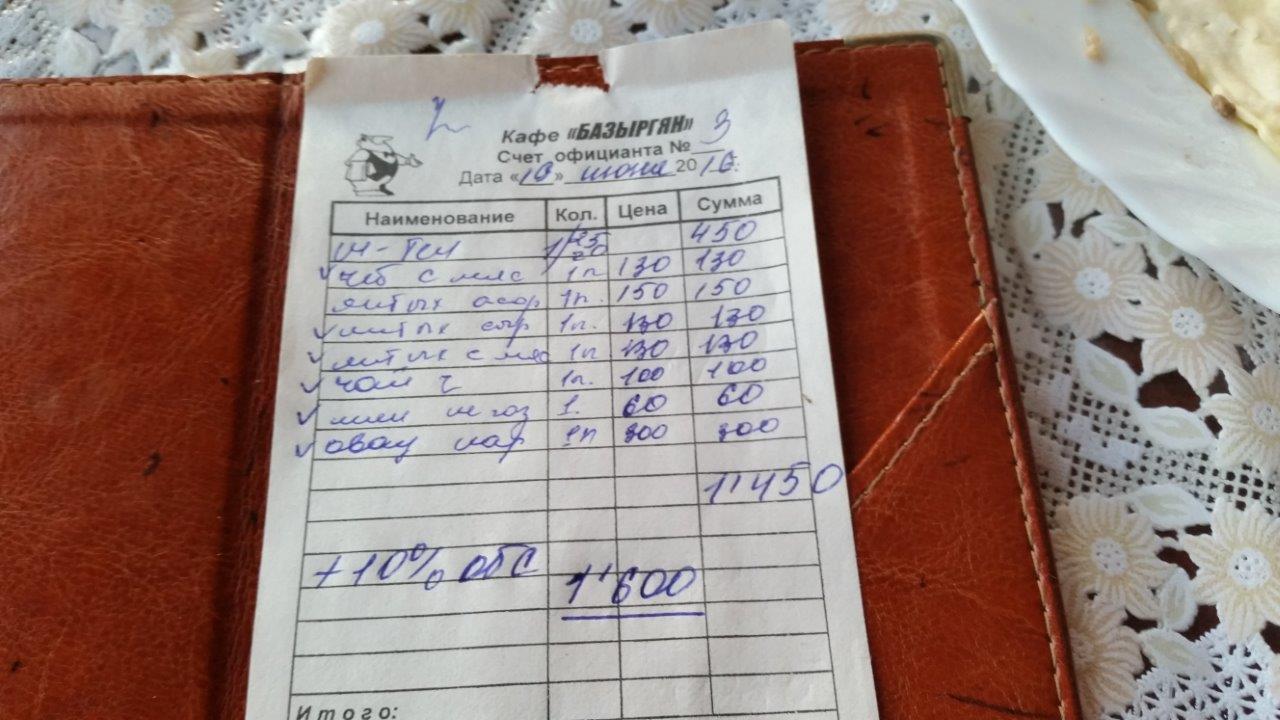 2
Кафе «БАЗЫРГЯН»
Счет официанта № 3
Дата «19» июня 2016
Наименование Кол. Цена Сумма
450
чеб с мяс 1п 130 130
янтых асор 1п. 150 150
янтых сыр 1п. 130 130
янтых с мяс 1п 130 130
чай ч 1п. 100 100
мин не газ 1. 60 60
овощ 1п 300 300
1'450
+10% обс 1'600
Итого: